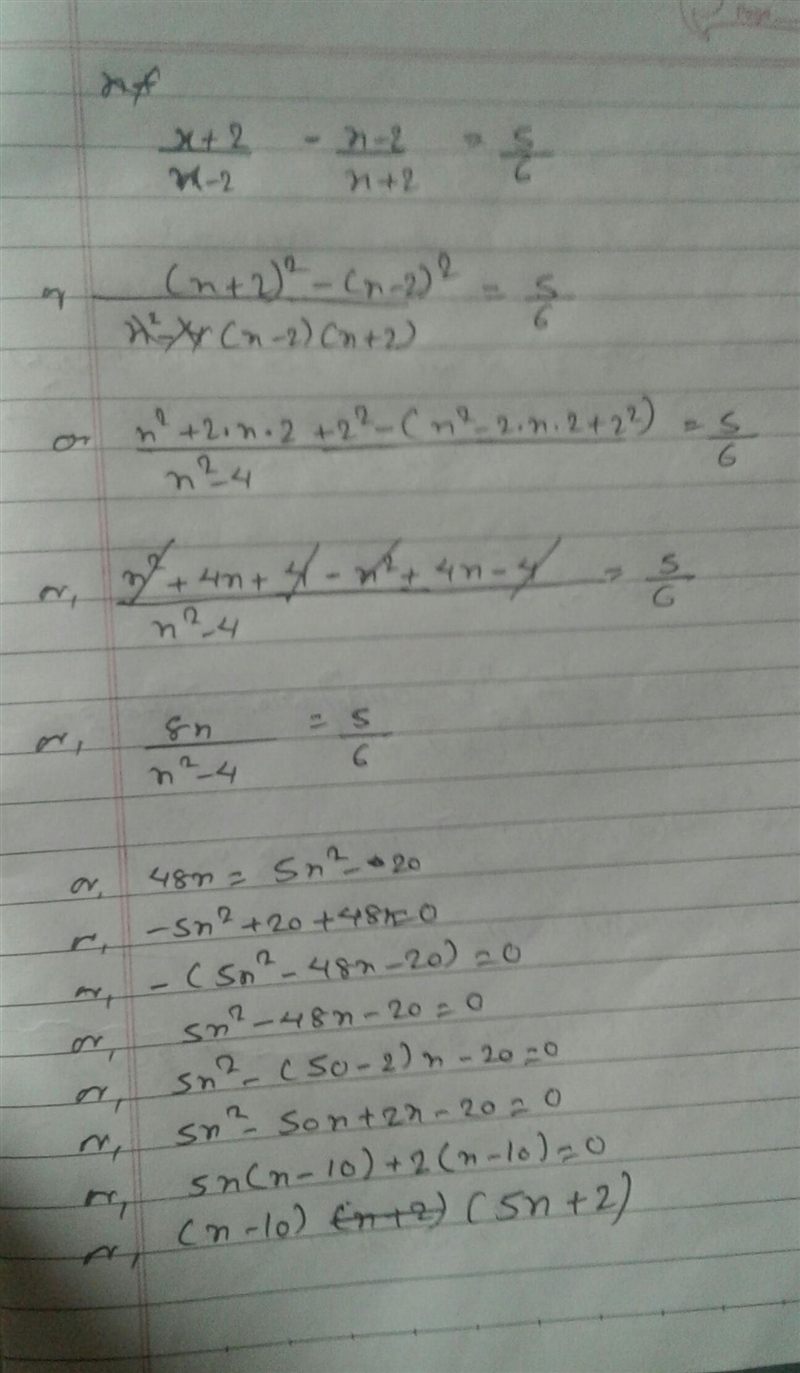 x+2/x-2 - x-2/x+2 = 5/6
or (x+2)² - (x-2)² / (x-2)(x+2) = 5/6
or x² + 2.x.2 + 2² - (x² - 2.x.2 + 2²) / x² - 4 = 5/6
or, x² + 4x + 4 - x² + 4x - 4 / x² - 4 = 5/6
or, 8x / x² - 4 = 5/6
or, 48x = 5x² - 20
or, -5x² + 20 + 48x = 0
or, -(5x² - 48x - 20) = 0
or, 5x² - 48x - 20 = 0
or, 5x² - (50 - 2)x - 20 = 0
or, 5x² - 50x + 2x - 20 = 0
or, 5x(x - 10) + 2(x - 10) = 0
or, (x - 10) (x + 2) (5x + 2)